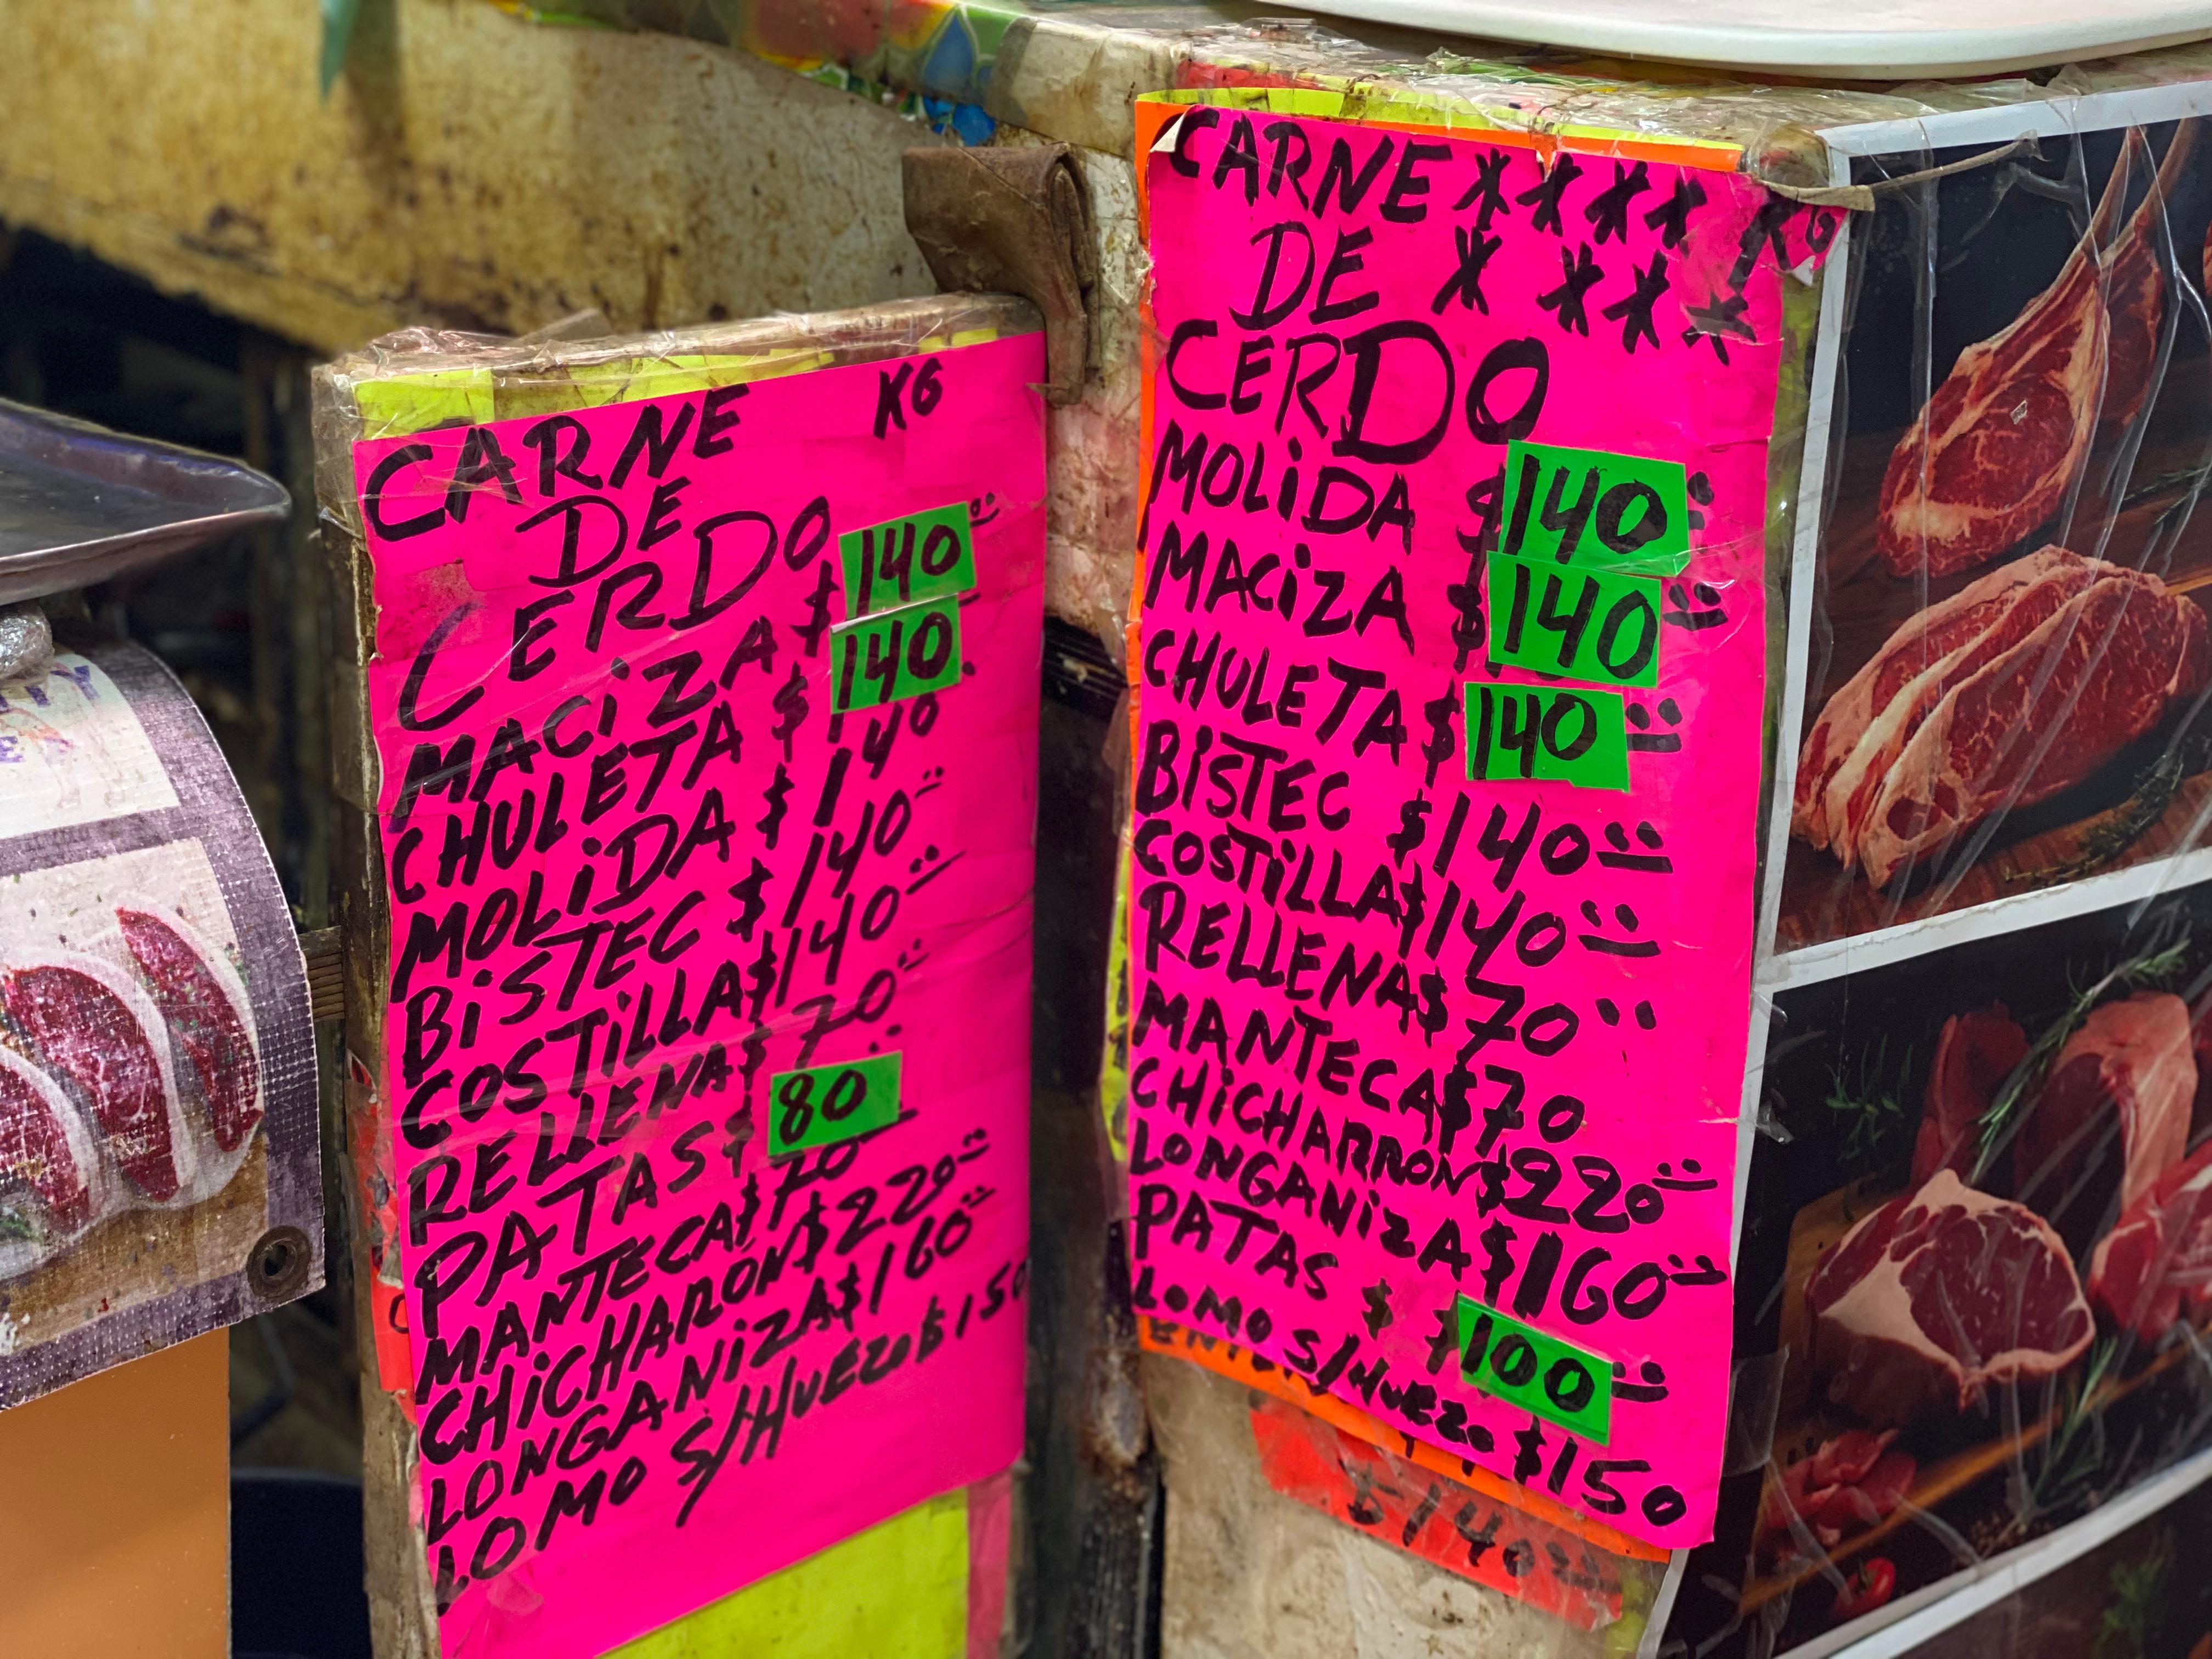 CARNE KG
DE
CERDO
MACIZA $ 140
CHULETA $ 140
MOLIDA $ 140
BISTEC $ 140
COSTILLA $ 140
RELLENA $ 70
PATAS $ 80
MANTECA $ 70
CHICHARON $ 220
LONGANIZA $ 160
LOMO S/HUEZO $ 150
CARNE **** KG
DE * ***
CERDO
MOLIDA $ 140
MACIZA $ 140
CHULETA $ 140
BISTEC $ 140
COSTILLA $ 140
RELLENA $ 70
MANTECA $ 70
CHICHARRON $ 220
LONGANIZA $ 160
PATAS $ $ 100
LOMO S/HUEZO $ 150